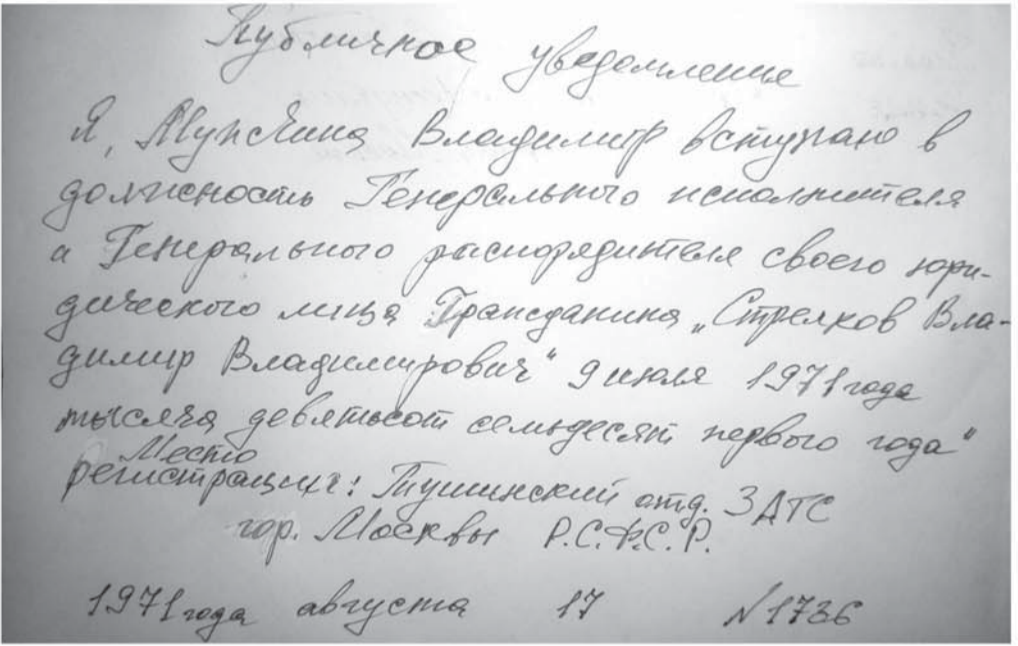 Публичное уведомление
Я, Мужчина Владимир вступаю в
должность Генерального исполнителя
и Генерального распорядителя своего юри-
дического лица Гражданина „Стрелков Вла-
димир Владимирович“ 9 июля 1971 года
тысяча девятьсот семьдесят первого года“
Место
регистрации: Тушинский отд. ЗАГС
гор. Москвы Р.С.Ф.С.Р.
1971 года августа 17 N1736